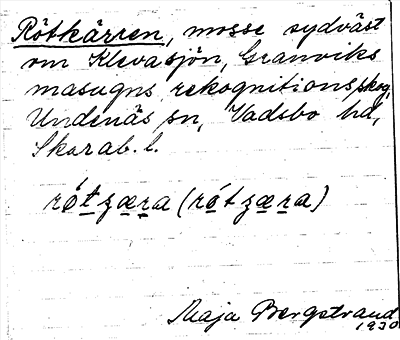 Rötkärren, mosse sydväst
om Klevasjön, Granviks
masugns rekognitionsskog,
Undenäs sn, Vadsbo hd,
Skarab. l.
rótzæra (rótzæra)
Maja Bergstrand
1930